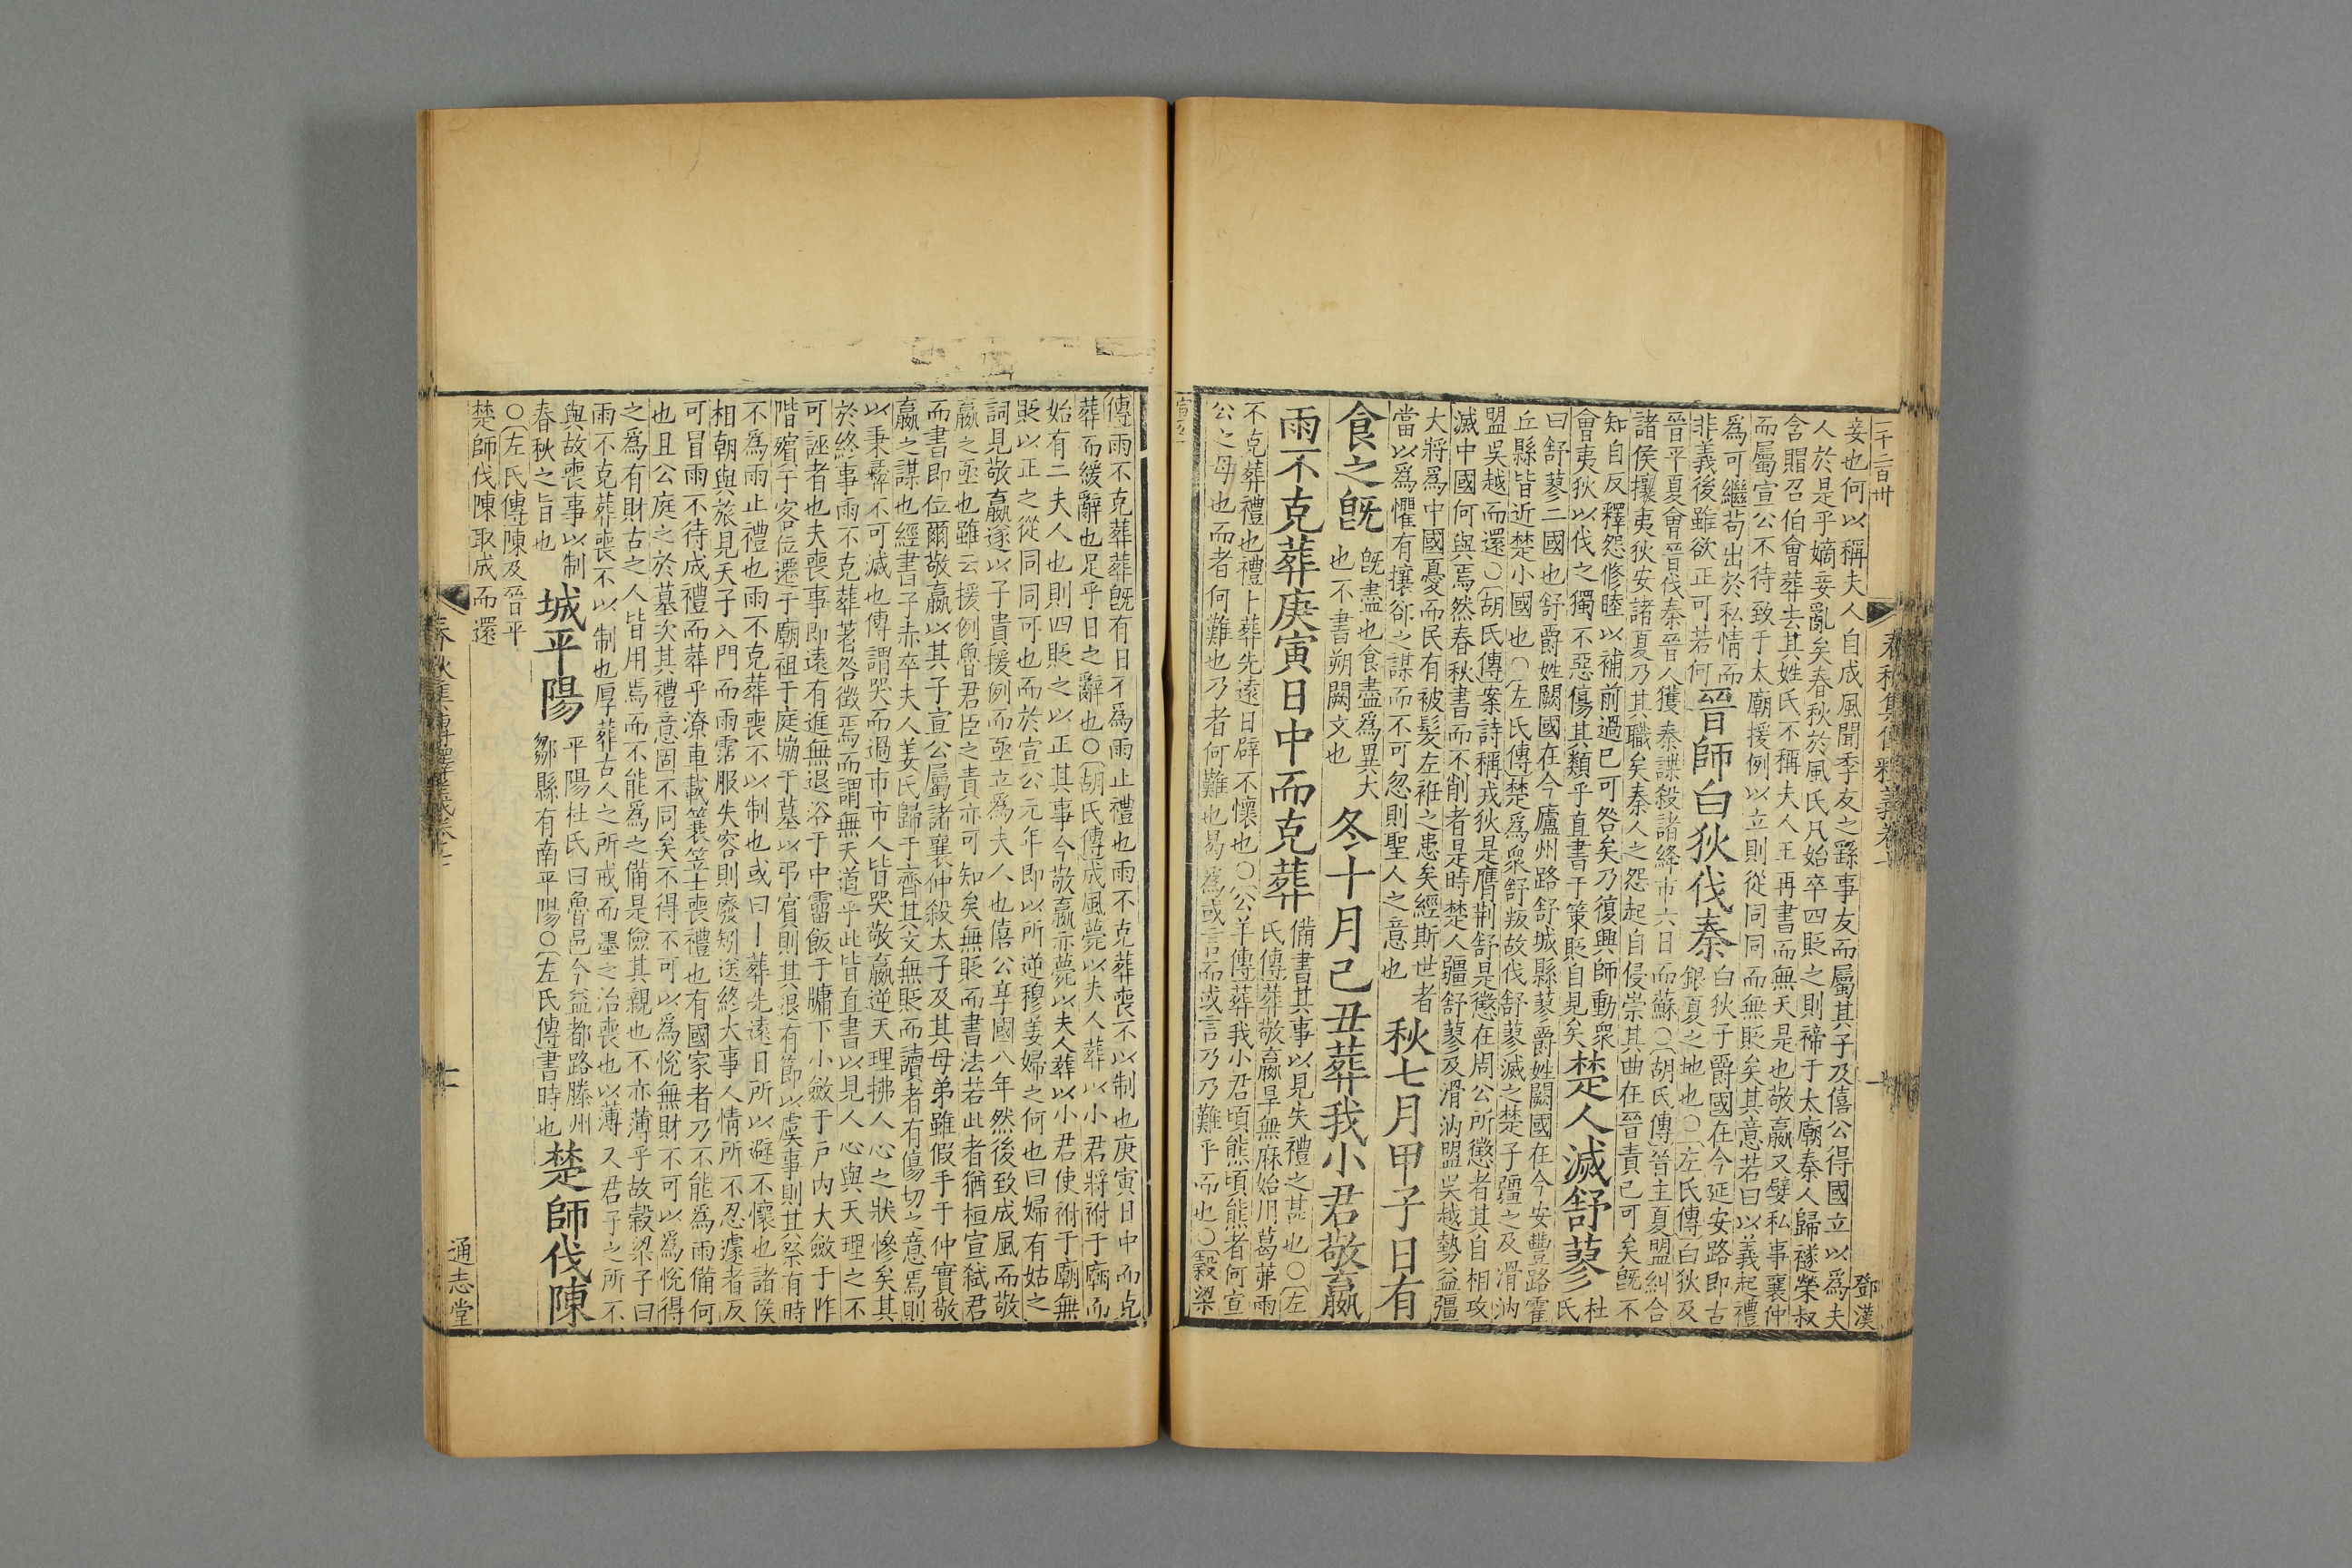 一千二百卅
鄧漢
春秋集傳釋義卷
妾也何以稱夫人自成風聞季友之繇事友而屬其子及僖公得國立以爲夫
人於是乎嫡妾亂矣春秋於風氏凡始卒四貶之則禘于太廟秦人歸襚榮叔
含賵召伯會葬去其姓氏不稱夫人王再書而無天是也敬嬴又嬖私事襄仲
而屬宣公不待致于太廟援例以立則從同同而無貶矣其意若曰以義起禮
爲可繼苟出於私情而
非義後雖欲正可若何
晉師白狄伐秦
白狄子爵國在今延安路即古
銀夏之地也〇左氏傳白狄及
晉平夏會晉伐秦晉人獲秦諜殺諸絳市六日而蘇〇胡氏傳晉主夏盟糾合
諸侯攘夷狄安諸夏乃其職矣秦人之怨起自侵崇其曲在晉責已可矣旣不
知自反釋怨修睦以補前過已可咎矣乃復興師動衆
會夷狄以伐之獨不惡傷其類乎直書于策貶自見矣
楚人滅舒蓼
杜
氏
曰舒蓼二國也舒爵姓闕國在今廬州路舒城縣蓼爵姓闕國在今安豐路霍
丘縣皆近楚小國也〇左氏傳楚爲衆舒叛故伐舒蓼滅之楚子疆之及滑汭
盟吳越而還〇胡氏傳案詩稱戎狄是膺荆舒是懲在周公所懲者其自相攻
滅中國何與焉然春秋書而不削者是時楚人疆舒蓼及滑汭盟吳越勢益彊
大將爲中國憂而民有被髮左袵之患矣經斯世者
當以爲懼有攘卻之謀而不可忽則聖人之意也
秋七月甲子日有
食之旣
旣盡也食盡爲異大
也不書朔闕文也
冬十月己丑葬我小君敬嬴
雨不克葬庚寅日中而克葬
備書其事以見失禮之甚也〇左
氏傳葬敬嬴旱無麻始用葛茀雨
不克葬禮也禮卜葬先遠日辟不懷也〇公羊傳葬我小君頃熊頃熊者何宣
公之母也而者何難也乃者何難也曷爲或言而或言乃乃難乎而也〇穀梁
傳雨不克葬葬旣有日不爲雨止禮也雨不克葬喪不以制也庚寅日中而克
葬而緩辭也足乎日之辭也〇胡氏傳成風薨以夫人葬以小君將祔于廟而
始有二夫人也則四貶之以正其事今敬嬴亦薨以夫人葬以小君使祔于廟無
貶以正之從同同可也而於宣公元年即以所逆穆姜婦之何也曰婦有姑之
詞見敬嬴遂以子貴援例而亟立爲夫人也僖公享國八年然後致成風而敬
嬴之亟也雖云援例魯君臣之責亦可知矣無貶而書法若此者猶桓宣弑君
而書即位爾敬嬴以其子宣公屬諸襄仲殺太子及其母弟雖假手于仲實敬
嬴之謀也經書子赤卒夫人姜氏歸于齊其文無貶而讀者有傷切之意焉則
以秉彝不可滅也傳謂哭而過市市人皆哭敬嬴逆天理拂人心之狀慘矣其
於終事雨不克葬著咎徵焉而謂無天道乎此皆直書以見人心與天理之不
可誣者也夫喪事即遠有進無退浴于中霤飯于牖下小斂于戶内大斂于阼
階殯于客位遷于廟祖于庭堋于墓以弔賓則其退有節以虞事則其祭有時
不爲雨止禮也雨不克葬喪不以制也或曰卜葬先遠日所以避不懷也諸侯
相朝與旅見天子入門而雨霑服失容則廢矧送終大事人情所不忍遽者反
可冒雨不待成禮而葬乎潦車載簑笠士喪禮也有國家者乃不能爲雨備何
也且公庭之於墓次其禮意固不同矣不得不可以爲悅無財不可以爲悅得
之爲有財古之人皆用焉而不能爲之備是儉其親也不亦薄乎故穀梁子曰
雨不克葬喪不以制也厚葬古人之所戒而墨之治喪也以薄又君子之所不
與故喪事以制
春秋之旨也
城平陽
平陽杜氏曰魯邑今益都路滕州
鄒縣有南平陽〇左氏傳書時也
楚師伐陳
〇左氏傳陳及晉平
楚師伐陳取成而還
十一
通志堂